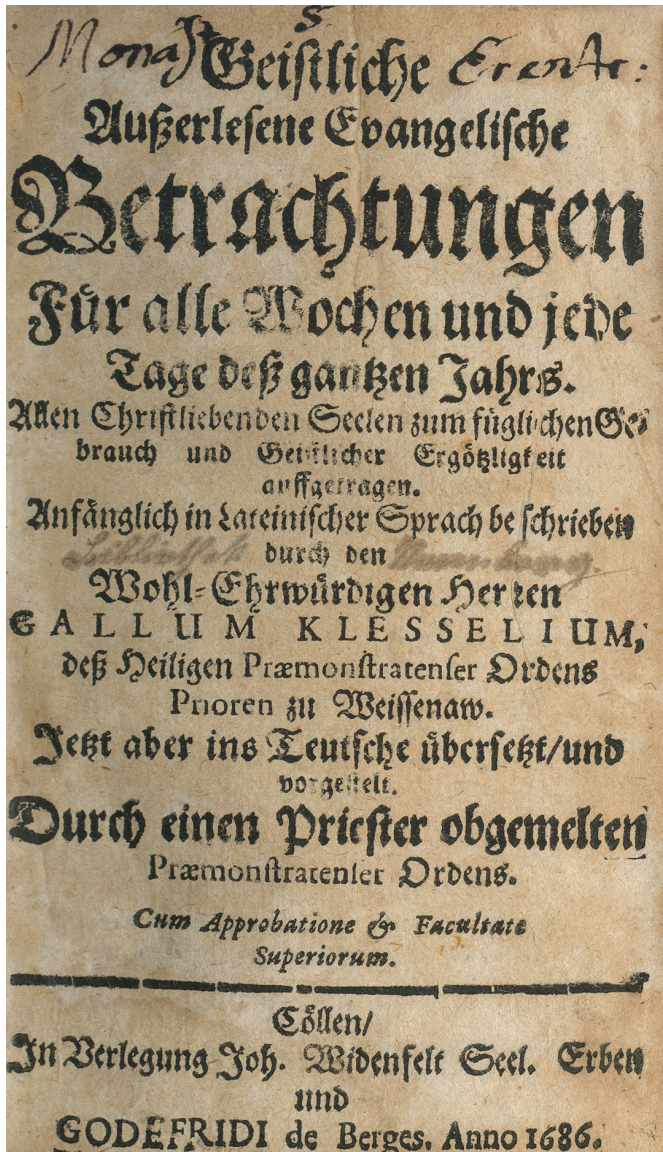 Monast S. Erentr:
Geistliche
Außerlesene Evangelische
Betrachtungen
Für alle Wochen und jede
Tage deß gantzen Jahrs.
Allen Christliebenden Seelen zum füglichen Ge-
brauch und Geistlicher Ergötzligkeit
auffgetragen.
Anfänglich in Lateinischer Sprach beschrieben
durch den
Wohl-Ehrwürdigen Herren
GALLUM KLESSELIUM,
deß Heiligen Præmonstratenser Ordens
Prioren zu Weissenaw.
Jetzt aber ins Teutsche übersetzt/und
vorgestelt.
Durch einen Priester obgemelten
Præmonstratenser Ordens.
Cum Approbatione & Facultate
Superiorum.
Cöllen/
In Verlegung Joh. Widenfelt Seel. Erben
und
GODEFRIDI de Berges. Anno 1686.